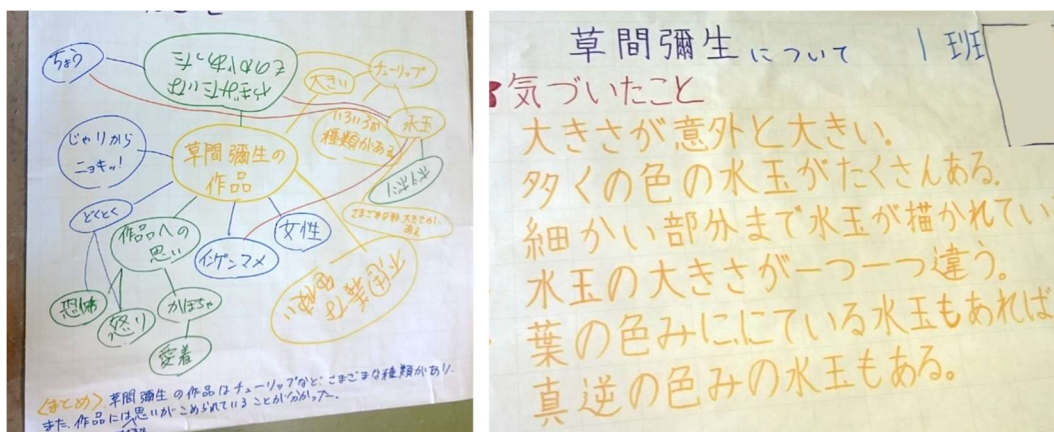 ちょう
大きい
チューリップ
水玉
いろいろな
種類がある
じゃりから
ニョキッ!
草間彌生の
作品
どくとく
作品への
思い
インゲンマメ
女性
恐怖
怒り
かぼちゃ
愛着
不思議な
色使い
<まとめ> 草間彌生の作品はチューリップなど、さまざまな種類があり、
また、作品には思いがこめられていることが分かった。
草間彌生について 1班
気づいたこと
大きさが意外と大きい。
多くの色の水玉がたくさんある。
細かい部分まで水玉が描かれてい
水玉の大きさが一つ一つ違う。
葉の色みににている水玉もあれば
真逆の色みの水玉もある。